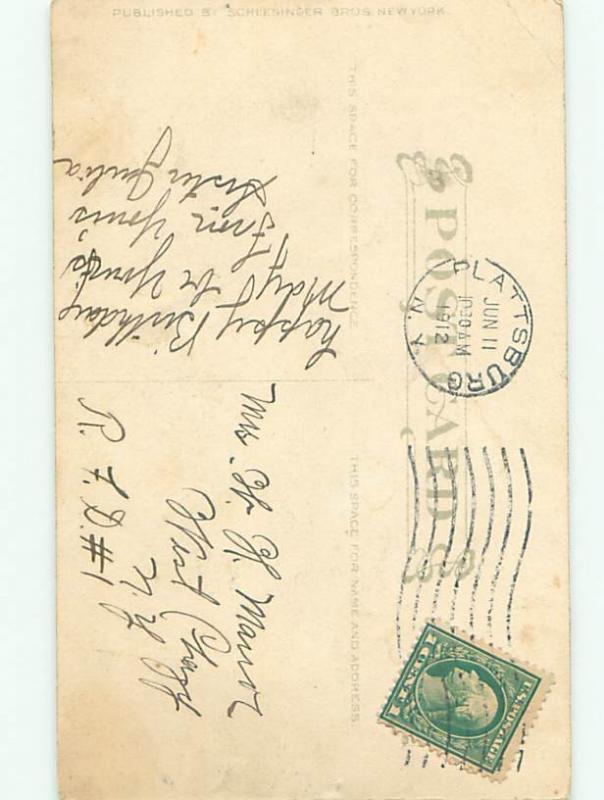 PUBLISHED BY SCHLESINGER BROS. NEW YORK
POST CARD
THIS SPACE FOR CORRESPONDENCE
THIS SPACE FOR NAME AND ADDRESS.
PLATTSBURG N.Y.
JUN 11
1030 AM
1912
U.S. POSTAGE
1 CENT 1
happy Birthday
May be yours
From Yours
Sister Julia
Mrs. H. H. Manor
West Chazy
N. Y
R. F. D. #1